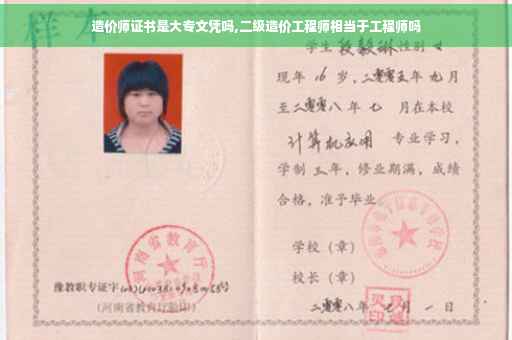 造价师证书是大专文凭吗,二级造价工程师相当于工程师吗
样本
学生 段毅琳 性别 女
现年 16 岁,二零零五年 九月
至二零零八年 七 月在本校
计算机应用 专业学习,
学制 三年,修业期满,成绩
合格,准予毕业
学校(章)
校长(章)
河南省教育厅
豫教职专证字
(河南省教育厅验印)
二零零八年 月 一 日